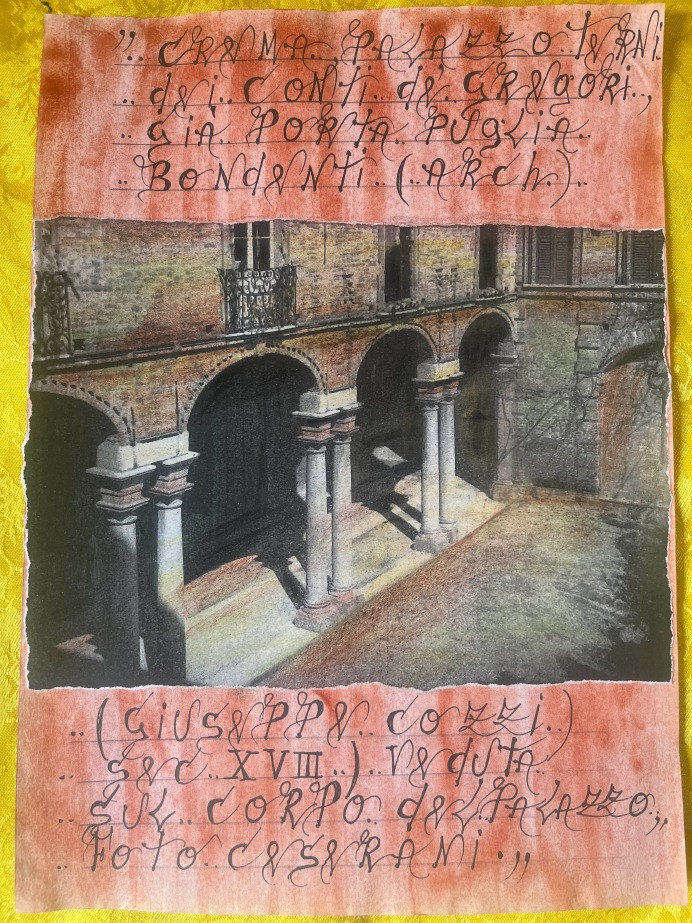 ,,. CREMA. PALAZZO TERNI.
.. dei.. CONTI. de' GREgORi.,
.. GiÀ PORTA. PUGLIA..
.. BONdENTi.. (.ARCh.).
.. (GiUSEPPE.. COZZi.)
.. SEC.. XVIII..). VEdUTA.
.. SUL.. CORPO. dEL.PALAZZO.,,
.. FOTO. CESERANi.,,